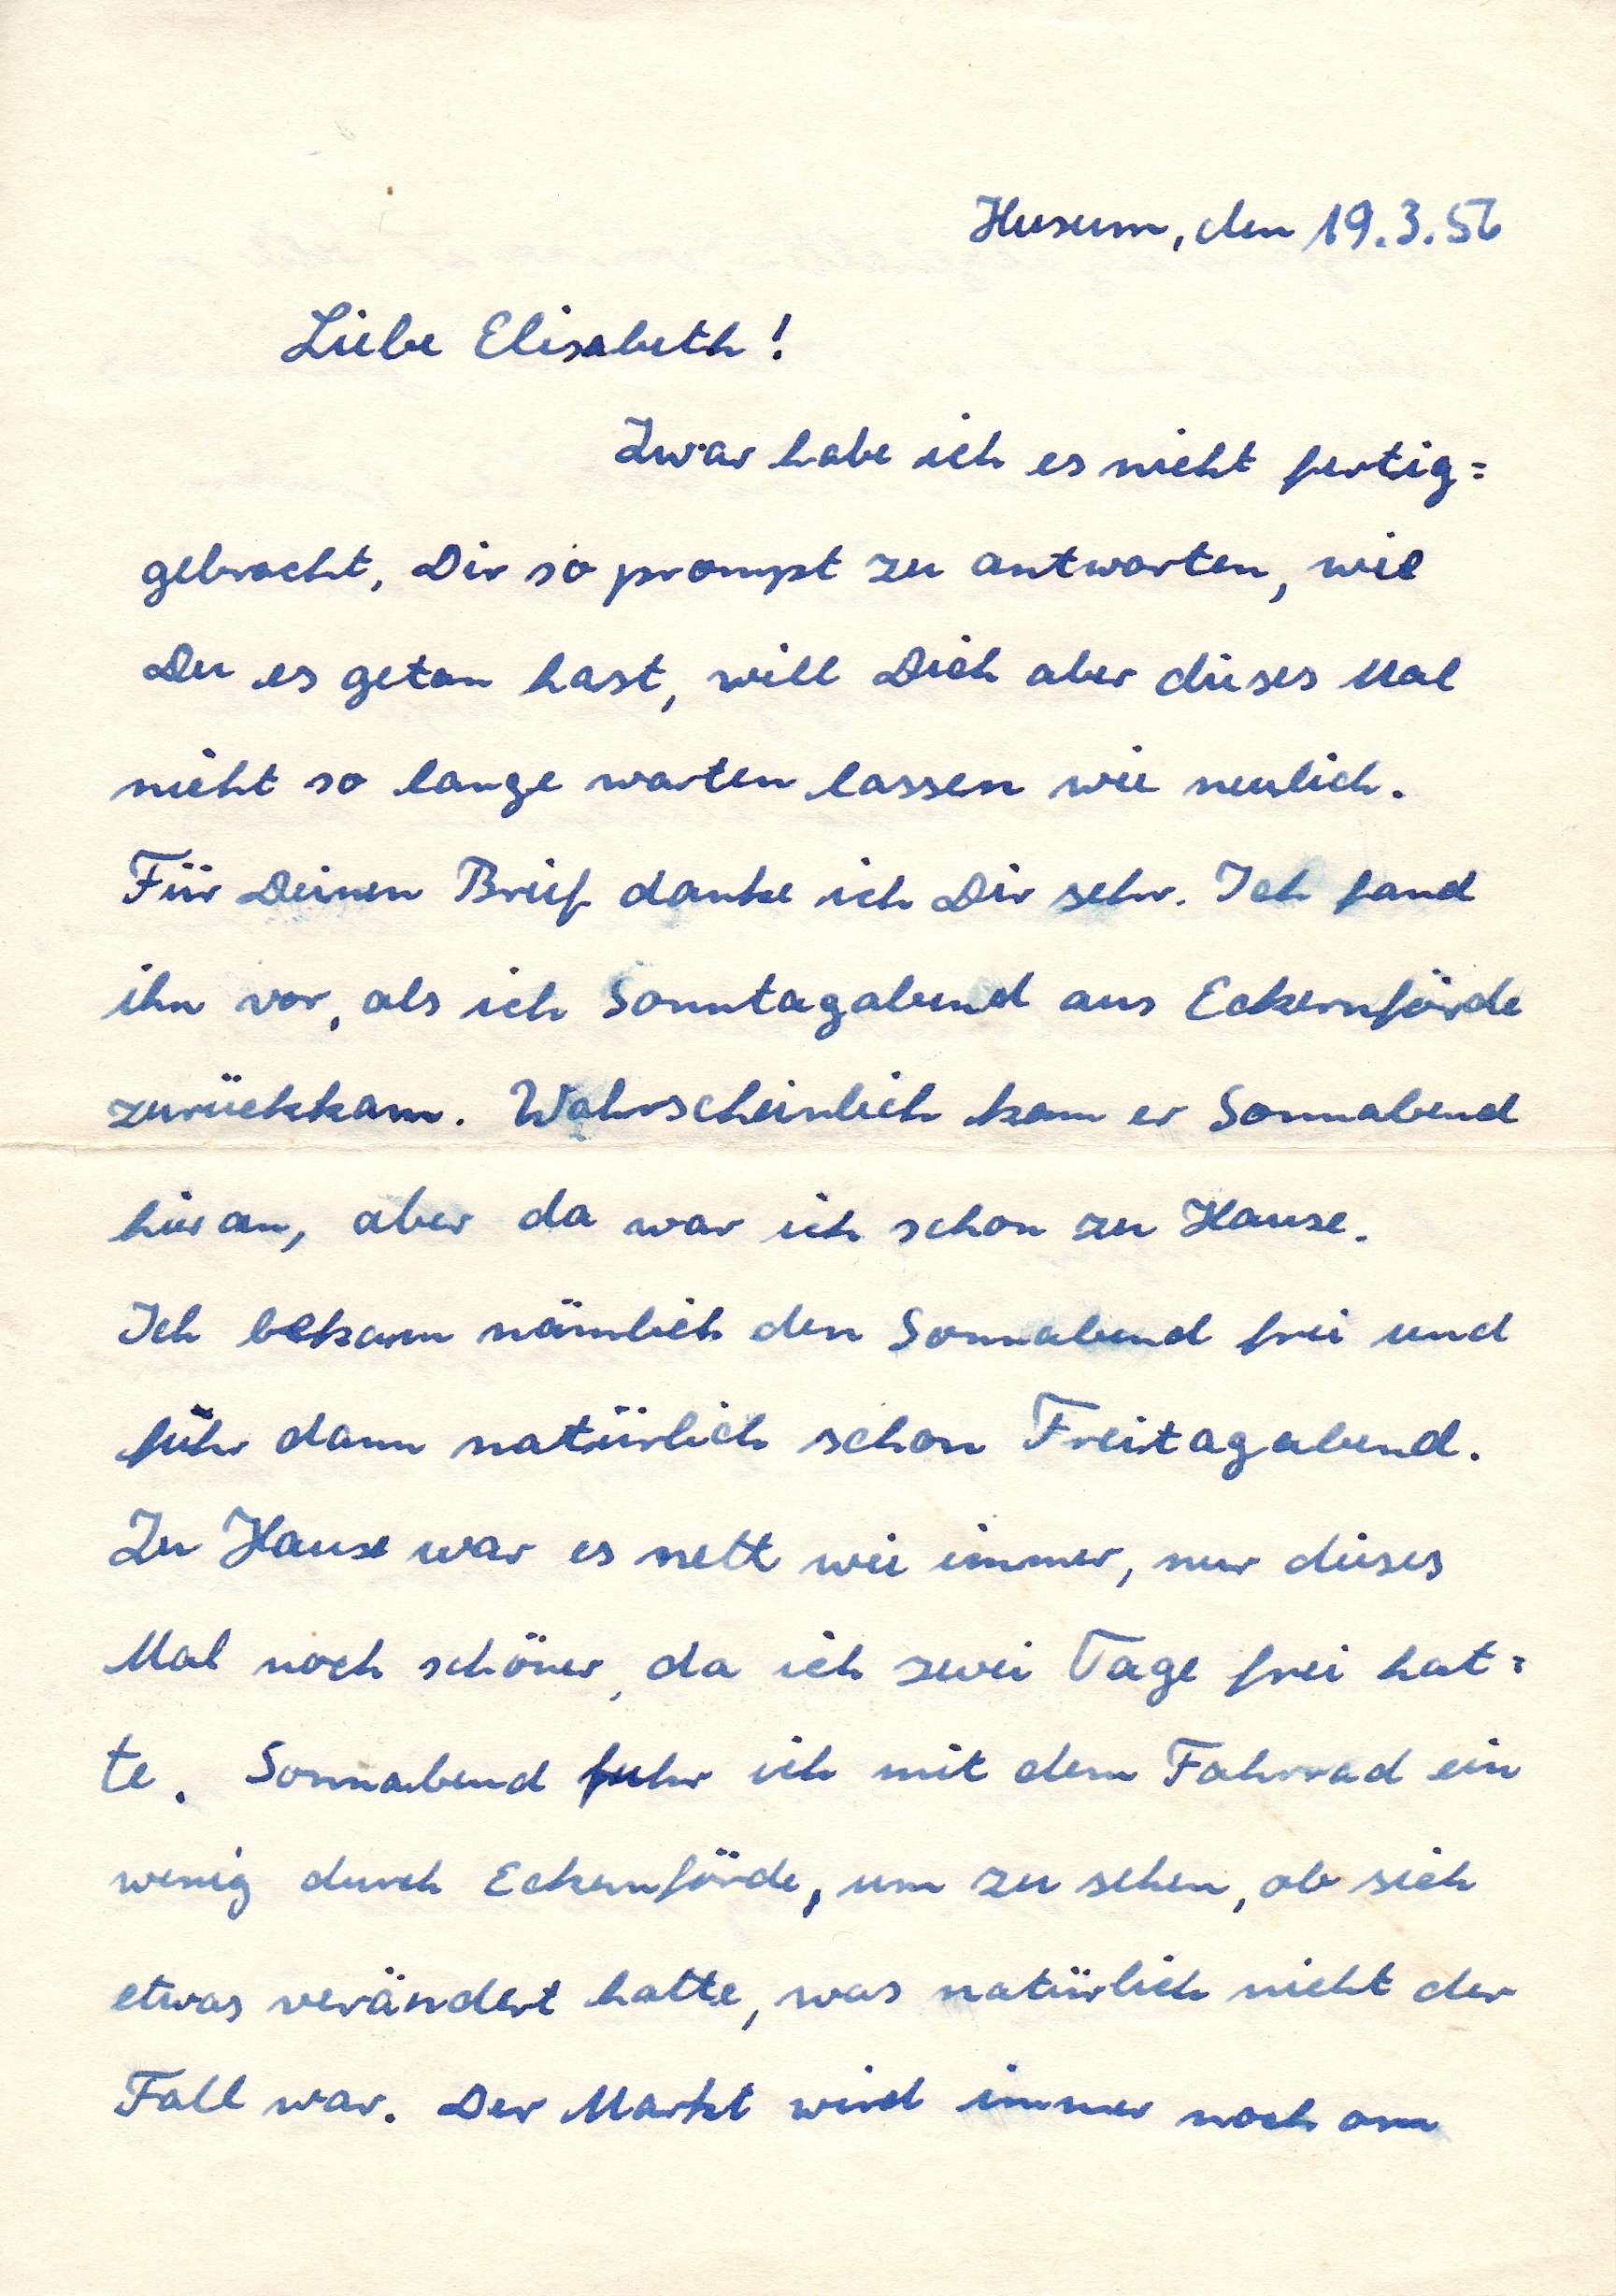 Husum, den 19.3.56
Liebe Elisabeth!
Zwar habe ich es nicht fertig=
gebracht, Dir so prompt zu antworten, wie
Du es getan hast, will Dich aber dieses Mal
nicht so lange warten lassen wie neulich.
Für Deinen Brief danke ich Dir sehr. Ich fand
ihn vor, als ich Sonntagabend aus Eckernförde
zurückkam. Wahrscheinlich kam er Sonnabend
hier an, aber da war ich schon zu Hause.
Ich bekam nämlich den Sonnabend frei und
fuhr dann natürlich schon Freitagabend.
Zu Hause war es nett wie immer, nur dieses
Mal noch schöner, da ich zwei Tage frei hat=
te. Sonnabend fuhr ich mit dem Fahrrad ein
wenig durch Eckernförde, um zu sehen, ob sich
etwas verändert hatte, was natürlich nicht der
Fall war. Der Markt wird immer noch am